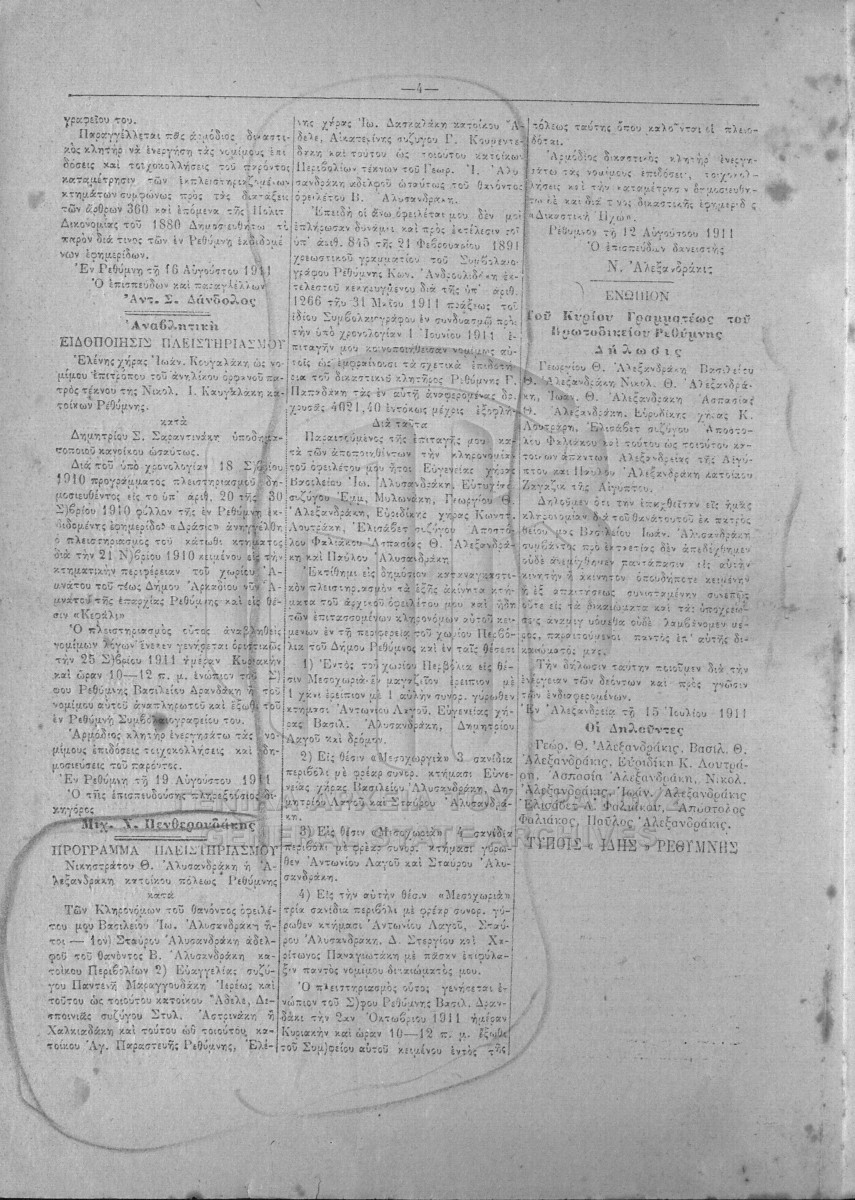 —4—
γραφείου του.
Παραγγέλλεται πᾶς ἁρμόδιος δικαστι-
κὸς κλητὴρ νὰ ἐνεργήση τὰς νομίμους ἐπι
δόσεις καὶ τοιχοκολλήσεις τοῦ παρόντος
καταμέτρησιν τῶν ἐκπλειστηριαζομένων
κτημάτων συμφώνως πρὸς τὰς διατάξεις
τῶν ἄρθρων 360 καὶ ἑπόμενα τῆς Πολιτ
Δικονομίας τοῦ 1880 Δημοσιευθήτω τὸ
παρὸν διά τινος τῶν ἐν Ρεθύμνῃ ἐκδιδομέ
νων ἐφημερίδων.
Ἐν Ρεθύμνῃ τῇ 16 Αὐγούστου 1911
Ὁ ἐπισπεύδων καὶ παραγγέλλων
Ἀντ. Σ. Δάνδολος
Ἀναβλητικὴ
ΕΙΔΟΠΟΙΗΣΙΣ ΠΛΕΙΣΤΗΡΙΑΣΜΟΥ
Ἑλένης χήρας Ἰωάν. Καυγαλάκη ὡς νο-
μίμου ἐπιτρόπου τοῦ ἀνηλίκου ὀρφανοῦ πα-
τρὸς τέκνου της Νικολ. Ι. Καυγαλάκη κα-
τοίκων Ρεθύμνης.
κατὰ
Δημητρίου Σ. Σαραντινάκη ὑποδημα-
τοποιοῦ κατοίκου ὡσαύτως.
Διὰ τοῦ ὑπὸ χρονολογίαν 18 Σ)βρίου
1910 προγράμματος πλειστηριασμοῦ δη-
μοσιευθέντος εἰς τὸ ὑπ' ἀριθ. 20 τῆς 30
Σ)βρίου 1910 φύλλον τῆς ἐν Ρεθύμνῃ ἐκ-
διδομένης ἐφημερίδος «Δράσις» ἀνηγγέλθη
ὁ πλειστηριασμὸς τοῦ κάτωθι κτήματος
διὰ τὴν 21 Ν)βρίου 1910 κειμένου εἰς τὴν
κτηματικὴν περιφέρειαν τοῦ χωρίου Ἀ-
μνάτου τοῦ τέως Δήμου Ἀρκαδίου νῦν Ἀ-
μνάτου τῆς ἐπαρχίας Ρεθύμνης καὶ εἰς θέ-
σιν «Κεφάλι»
Ὁ πλειστηριασμὸς οὗτος ἀναβληθεὶς
νομίμων λόγων ἕνεκεν γενήσεται ὁριστικῶς
τὴν 25 Σ)βρίου 1911 ἡμέραν Κυριακὴν
καὶ ὥραν 10—12 π. μ. ἐνώπιον τοῦ Σ)
φου Ρεθύμνης Βασιλείου Δρανδάκη ἢ τοῦ
νομίμου αὐτοῦ ἀναπληρωτοῦ καὶ ἔξωθι τοῦ
ἐν Ρεθύμνῃ Συμβολαιογραφείου του.
Ἁρμόδιος κλητὴρ ἐνεργησάτω τὰς νο-
μίμους ἐπιδόσεις τοιχοκολλήσεις καὶ δη-
μοσιεύσεις τοῦ παρόντος.
Ἐν Ρεθύμνῃ τῇ 19 Αὐγούστου 1911
Ὁ τῆς ἐπισπευδούσης πληρεξούσιος δι-
κηγόρος
Μιχ. Χ. Πενθερουδάκης
ΠΡΟΓΡΑΜΜΑ ΠΛΕΙΣΤΗΡΙΑΣΜΟΥ
Νικηστράτου Θ. Ἀλυσανδράκη ἢ Ἀ-
λεξανδράκη κατοίκου πόλεως Ρεθύμνης
κατὰ
Τῶν Κληρονόμων τοῦ θανόντος ὀφειλέ-
του μου Βασιλείου Ἰω. Ἀλυσανδράκη ἤ-
τοι — 1ον) Σταύρου Ἀλυσανδράκη ἀδελ-
φοῦ τοῦ θανόντος Β. Ἀλυσανδράκη κα-
τοίκου Περιβολίων 2) Εὐαγγελίας συζύ-
γου Παντελῆ Μαραγγουδάκη Ἱερέως καὶ
τούτου ὡς τοιούτου κατοίκου Ἄδελε, Δε-
σποινιᾶς συζύγου Στυλ. Ἀστρινάκη ἢ
Χαλκιαδάκη καὶ τούτου ὡς τοιούτου κα-
τοίκου Ἁγ. Παρασκευῆς Ρεθύμνης, Ἑλέ-
νης χήρας Ἰω. Δασκαλάκη κατοίκου Ἄ-
δελε, Αἰκατερίνης συζύγου Γ. Κουμεντε-
δάκη καὶ τούτου ὡς τοιούτου κατοίκων
Περιβολίων τέκνων τοῦ Γεωρ. Ι. Ἀλυ-
σανδράκη ἀδελφοῦ ὡσαύτως τοῦ θανόντος
ὀφειλέτου Β. Ἀλυσανδράκη.
Ἐπειδὴ οἱ ἄνω ὀφειλέται μου δὲν μοὶ
ἐπλήρωσαν δυνάμει καὶ πρὸς ἐκτέλεσιν τοῦ
ὑπ' ἀριθ. 845 τῆς 21 Φεβρουαρίου 1891
χρεωστικοῦ γραμματίου τοῦ Συμβολαιο-
γράφου Ρεθύμνης Κων. Ἀνδρουλιδάκη ἐκ-
τελεστοῦ κεκηρυγμένου διὰ τῆς ὑπ' ἀριθ.
1266 τῆς 31 Μαΐου 1911 πράξεως τοῦ
ἰδίου Συμβολαιογράφου ἐν συνδυασμῷ πρὸς
τὴν ὑπὸ χρονολογίαν 1 Ἰουνίου 1911 ἐ-
πιταγήν μου κοινοποιηθεῖσαν νομίμως αὐ-
τοῖς ὡς ἐμφαίνουσι τὰ σχετικὰ ἐπιδοτή-
ρια τοῦ δικαστικοῦ κλητῆρος Ρεθύμνης Γ.
Παπαδάκη τὰς ἐν αὐτῇ ἀναφερομένας δρ.
χρυσᾶς 4621,40 ἐντόκως μέχρις ἐξοφλή-
Διὰ ταῦτα
Παραιτούμενος τῆς ἐπιταγῆς μου κα-
τὰ τῶν ἀποποιηθέντων τὴν κληρονομίαν
τοῦ ὀφειλέτου μου ἤτοι Εὐγενείας χήρας
Βασιλείου Ἰω. Ἀλυσανδράκη, Εὐτυχίας
συζύγου Ἐμμ. Μυλωνάκη, Γεωργίου Θ.
Ἀλεξανδράκη, Εὐριδίκης χήρας Κωνστ.
Λουτράκη, Ἐλισάβετ συζύγου Ἀποστό-
λου Φαλιάκου Ἀσπασίας Θ. Ἀλεξανδρά-
κη καὶ Παύλου Ἀλυσανδράκη
Ἐκτίθημι εἰς δημόσιον καταναγκαστι-
κὸν πλειστηριασμὸν τὰ ἑξῆς ἀκίνητα κτή-
ματα τοῦ ἀρχικοῦ ὀφειλέτου μου καὶ ἤδη
τῶν ἐπιτασσομένων κληρονόμων του κεί-
μενων ἐν τῇ περιφερείᾳ τοῦ χωρίου Περβό-
λια τοῦ Δήμου Ρεθύμνος καὶ ἐν ταῖς θέσεσι
1) Ἐντὸς τοῦ χωρίου Περβόλια εἰς θέ-
σιν Μεσοχωριὰ ἓν μαγαζεῖον ἐρείπιον μὲ
1 χάνι ἐρείπιον μὲ 1 αὐλὴν συνορ. γύρωθεν
κτήμασι Ἀντωνίου Λαγοῦ, Εὐγενείας χή-
ρας Βασιλ. Ἀλυσανδράκη, Δημητρίου
Λαγοῦ καὶ δρόμον.
2) Εἰς θέσιν «Μεσοχωργιὰ» 3 σανίδια
περιβόλι μὲ φρέαρ συνορ. κτήμασι Εὐγε-
νείας χήρας Βασιλείου Ἀλυσανδράκη, Δη-
μητρίου Λαγοῦ καὶ Σταύρου Ἀλυσανδρά-
κη.
3) Εἰς θέσιν «Μεσοχωριὰ» 4 σανίδια
περιβόλι μὲ φρέαρ συνορ. κτήμασι γύρω-
θεν Ἀντωνίου Λαγοῦ καὶ Σταύρου Ἀλυ-
σανδράκη.
4) Εἰς τὴν αὐτὴν θέσιν «Μεσοχωριὰ»
τρία σανίδια περιβόλι μὲ φρέαρ συνορ. γύ-
ρωθεν κτήμασι Ἀντωνίου Λαγοῦ, Σταύ-
ρου Ἀλυσανδράκη, Δ. Στεργίου καὶ Χα-
ρίτωνος Παναγιωτάκη μὲ πᾶσαν ἐπιφύλα-
ξιν παντὸς νομίμου δικαιώματός μου.
Ὁ πλειστηριασμὸς οὗτος γενήσεται ἐ-
νώπιον τοῦ Σ)φου Ρεθύμνης Βασιλ. Δραν-
δάκι τὴν 2αν Ὀκτωβρίου 1911 ἡμέραν
Κυριακὴν καὶ ὥραν 10—12 π. μ. ἔξωθι
τοῦ Συμ)φείου αὐτοῦ κειμένου ἐντὸς τῆς
πόλεως ταύτης ὅπου καλοῦνται οἱ πλειο-
δόται.
Ἁρμόδιος δικαστικὸς κλητὴρ ἐνεργη-
σάτω τὰς νομίμους ἐπιδόσεις, τοιχοκολ-
λήσεις καὶ τὴν καταμέτρησιν δημοσιευθή-
τω δὲ καὶ διά τινος δικαστικῆς ἐφημερίδος
«Δικαστικὴ Ἠχώ».
Ρέθυμνον τῇ 12 Αὐγούστου 1911
Ὁ ἐπισπεύδων δανειστὴς
Ν. Ἀλεξανδράκις
ΕΝΩΠΙΟΝ
Τοῦ Κυρίου Γραμματέως τοῦ
Πρωτοδικείου Ρεθύμνης
Δήλωσις
Γεωργίου Θ. Ἀλεξανδράκη Βασιλείου
Θ. Ἀλεξανδράκη Νικολ. Θ. Ἀλεξανδρά-
κη, Ἰωάν. Θ. Ἀλεξανδράκη Ἀσπασίας
Θ. Ἀλεξανδράκη. Εὐρυδίκης χήρας Κ.
Λουτράκη, Ἐλισάβετ συζύγου Ἀποστό-
λου Φαλιάκου καὶ τούτου ὡς τοιούτου κα-
τοίκων ἁπάντων Ἀλεξανδρείας τῆς Αἰγύ-
πτου καὶ Παύλου Ἀλεξανδράκη κατοίκου
Ζαγαζὶκ τῆς Αἰγύπτου.
Δηλοῦμεν ὅτι τὴν ἐπαχθεῖσαν εἰς ἡμᾶς
κληρονομίαν διὰ τοῦ θανάτου τοῦ ἐκ πατρὸς
θείου μας Βασιλείου Ἰωάν. Ἀλυσανδράκη
συμβάντος πρὸ ἑνταετίας δὲν ἀπεδέχθημεν
οὐδὲ ἀνεμίχθημεν παντάπασιν εἰς αὐτὴν
κινητὴν ἢ ἀκίνητον ὁπουδήποτε κειμένην
ἢ ἐξ ἀπαιτήσεως συνισταμένην συνεπῶς
οὔτε εἰς τὰ δικαιώματα καὶ τὰς ὑποχρεώ-
σεις ἀναμιγνυόμεθα οὐδὲ λαμβάνομεν μέ-
ρος, παραιτούμενοι παντὸς ἐπ' αὐτῆς δι-
καιώματός μας.
Τὴν δήλωσιν ταύτην ποιοῦμεν διὰ τὴν
ἐνέργειαν τῶν δεόντων καὶ πρὸς γνῶσιν
τῶν ἐνδιαφερομένων.
Ἐν Ἀλεξανδρείᾳ τῇ 15 Ἰουλίου 1911
Οἱ Δηλοῦντες
Γεώρ. Θ. Ἀλεξανδράκις, Βασιλ. Θ.
Ἀλεξανδράκις, Εὐριδίκη Κ. Λουτρά-
ρη, Ἀσπασία Ἀλεξανδράκη, Νικολ.
Ἀλεξανδράκις, Ἰωάν. Ἀλεξανδράκις
Ἐλισάβετ Ἀ. Φαλιάκου, Ἀπόστολος
Φαλιάκος, Παῦλος Ἀλεξανδράκις.
ΤΥΠΟΙΣ «ΙΔΗΣ» ΡΕΘΥΜΝΗΣ